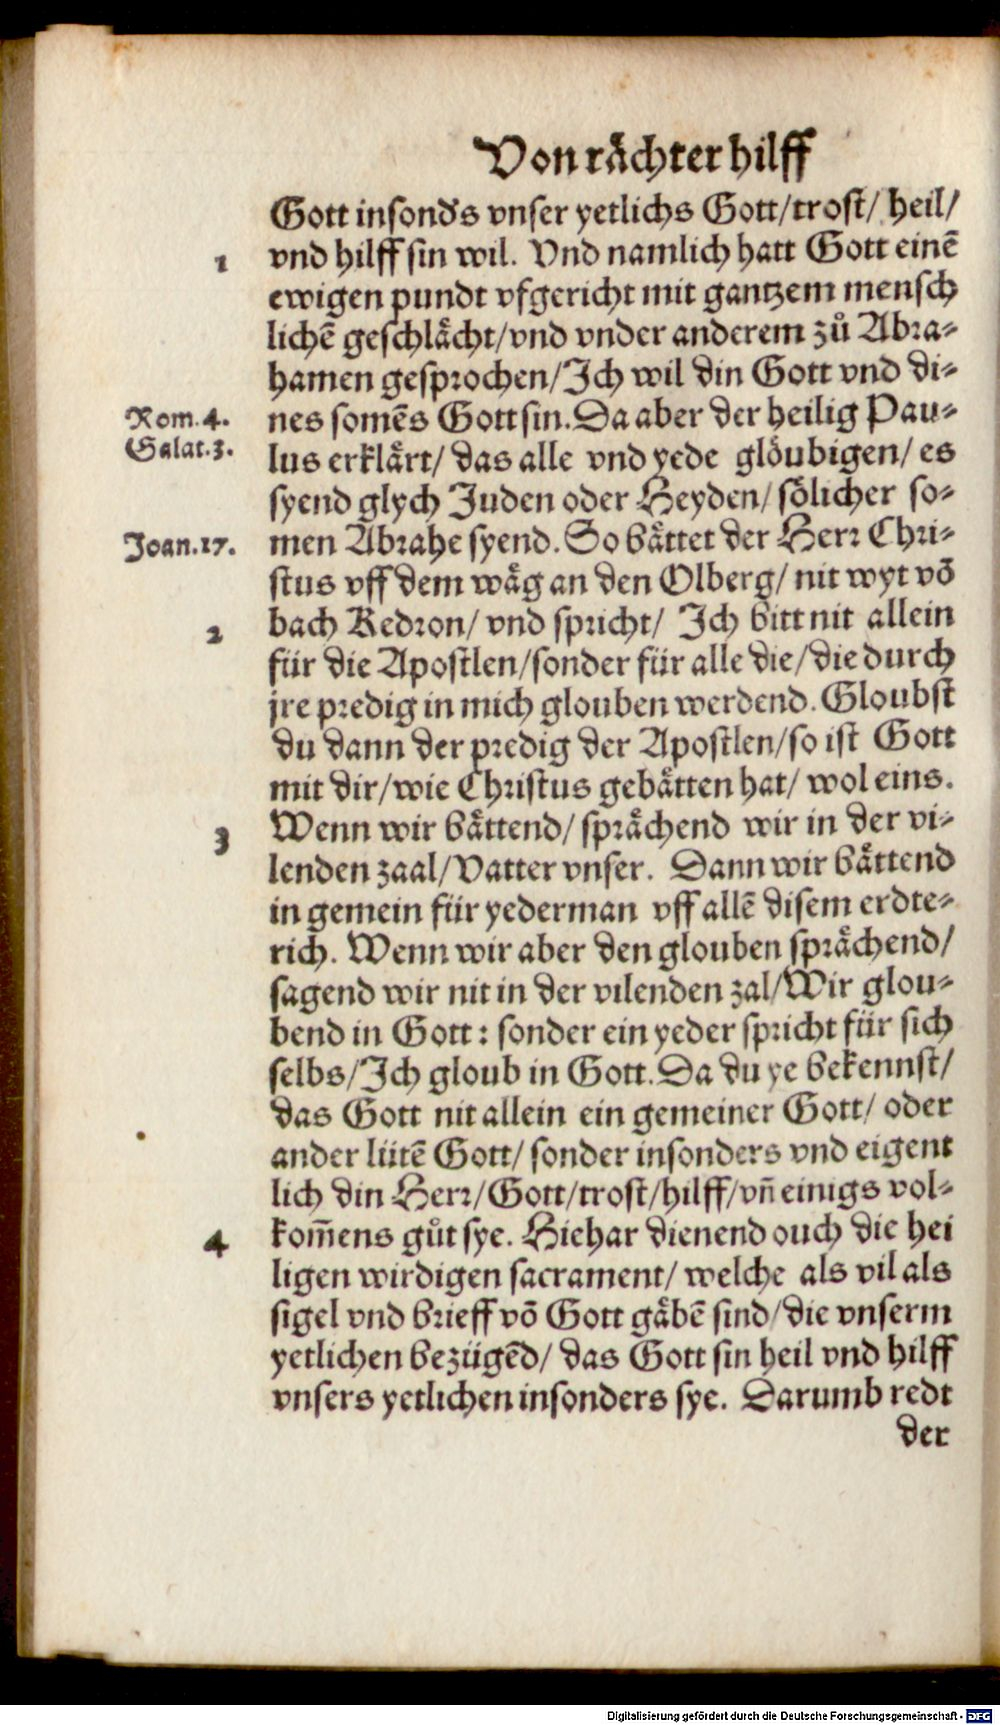 Von rächter hilff
Gott insonds vnser yetlichs Gott/trost/ heil/
1 vnd hilff sin wil. Vnd namlich hatt Gott einē
ewigen pundt vfgericht mit gantzem mensch
lichē geschlächt/vnd vnder anderem zů Abra-
hamen gesprochen/Ich wil din Gott vnd di-
Rom. 4. nes somēs Gott sin. Da aber der heilig Pau-
Galat. 3. lus erklärt/ das alle vnd yede glöubigen/ es
syend glych Juden oder Heyden/ sölicher so-
Joan. 17. men Abrahe syend. So bättet der Herr Chri-
stus vff dem wäg an den Olberg/ nit wyt vō
2 bach Kedron/ vnd spricht/ Ich bitt nit allein
für die Apostlen/sonder für alle die/die durch
jre predig in mich glouben werdend. Gloubst
du dann der predig der Apostlen/so ist Gott
mit dir/wie Christus gebätten hat/ wol eins.
3 Wenn wir bättend/ sprächend wir in der vi-
lenden zaal/Vatter vnser. Dann wir bättend
in gemein für yederman vff allē disem erdte-
rich. Wenn wir aber den glouben sprächend/
sagend wir nit in der vilenden zal/Wir glou-
bend in Gott: sonder ein yeder spricht für sich
selbs/Ich gloub in Gott. Da du ye bekennst/
das Gott nit allein ein gemeiner Gott/ oder
ander lütē Gott/ sonder insonders vnd eigent
lich din Herr/Gott/trost/hilff/vn̄ einigs vol-
4 kom̄ens gůt sye. Hiehar dienend ouch die hei
ligen wirdigen sacrament/ welche als vil als
sigel vnd brieff vō Gott gäbē sind/die vnserm
yetlichen bezügēd/ das Gott sin heil vnd hilff
vnsers yetlichen insonders sye. Darumb redt
der
Digitalisierung gefördert durch die Deutsche Forschungsgemeinschaft - DFG